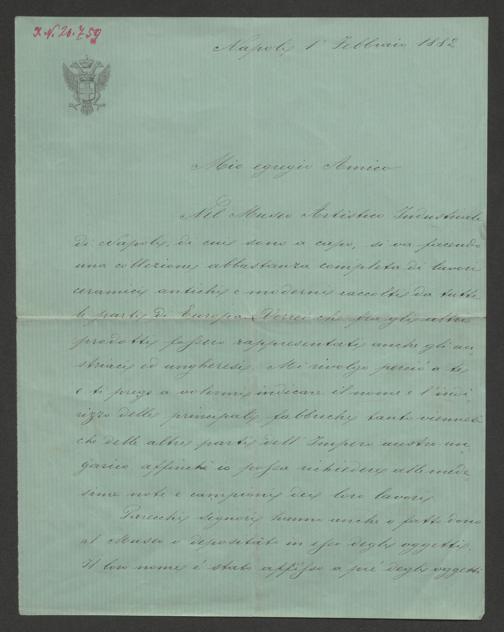 I.N. 20.759
Napoli, 1° Febbraio 1882
Mio egregio Amico
Nel Museo Artistico Industriale
di Napoli, di cui sono a capo, si va facendo
una collezione abbastanza completa di lavori
ceramici antichi e moderni raccolti da tutte
le parti di Europa. Vorrei che fra gli altri
prodotti fossero rappresentati anche gli au
striaci ed ungheresi. Mi rivolgo perciò a te
e ti prego a volermi indicare il nome e l'indi
rizzo delle principali fabbriche tanto viennesi
che delle altre parti dell'Impero austro un
garico affinchè io possa richiedere alle mede
sime note e campioni dei loro lavori
Parecchi signori hanno anche o fatto dono
al Museo o depositato in esso degli oggetti.
Il loro nome è stato affisso a piè degli oggetti